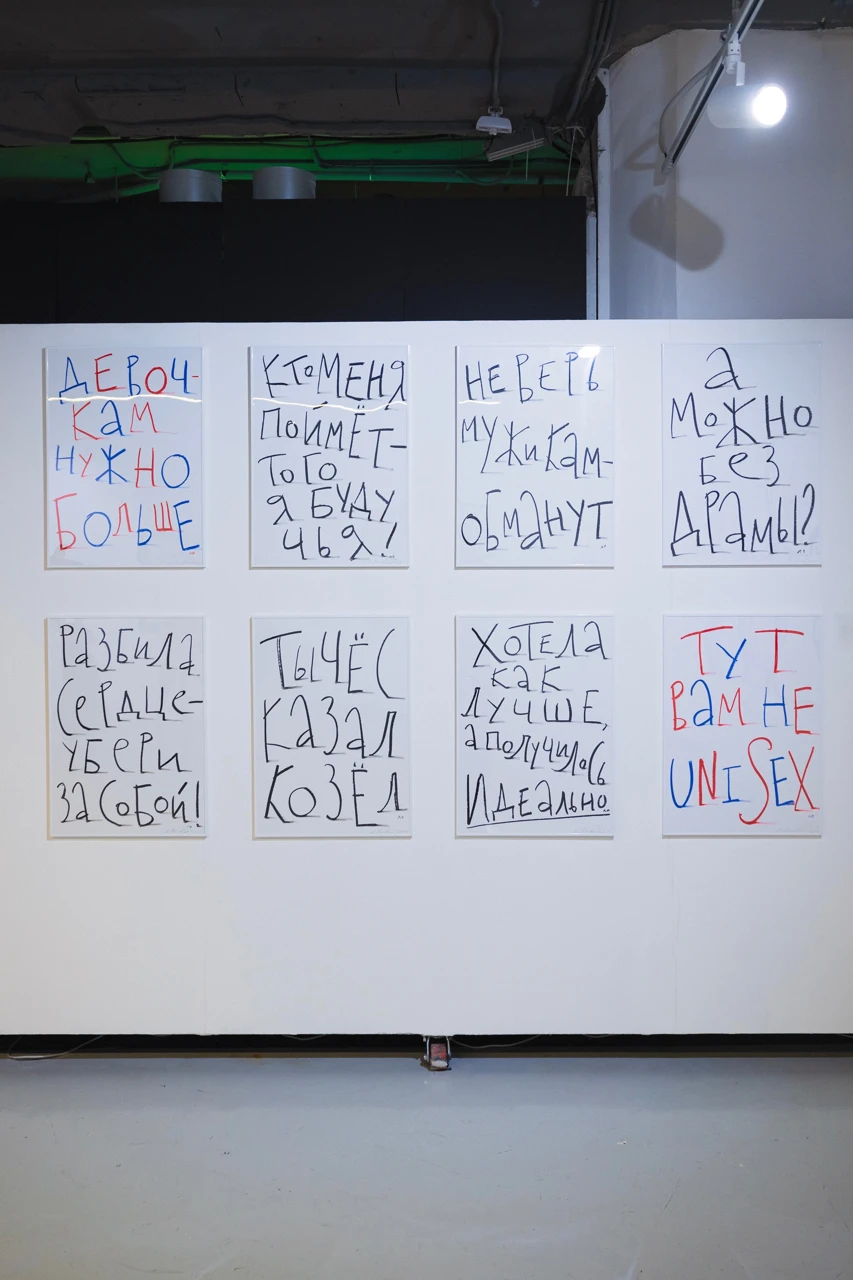 ДЕВОЧ-
КАМ
НУЖНО
БОЛЬШЕ
КТО МЕНЯ
ПОЙМЁТ-
ТОГО
Я БУДУ
ЧЬЯ!
НЕ ВЕРЬ
МУЖИКАМ-
ОБМАНУТ
А
МОЖНО
БЕЗ
ДРАМЫ?
РАЗБИЛА
СЕРДЦЕ-
УБЕРИ
ЗА СОБОЙ!
ТЫ ЧЁ С
КАЗАЛ
КОЗЁЛ
ХОТЕЛА
КАК
ЛУЧШЕ,
А ПОЛУЧИЛОСЬ
ИДЕАЛЬНО
ТУТ
ВАМ НЕ
UNISEX